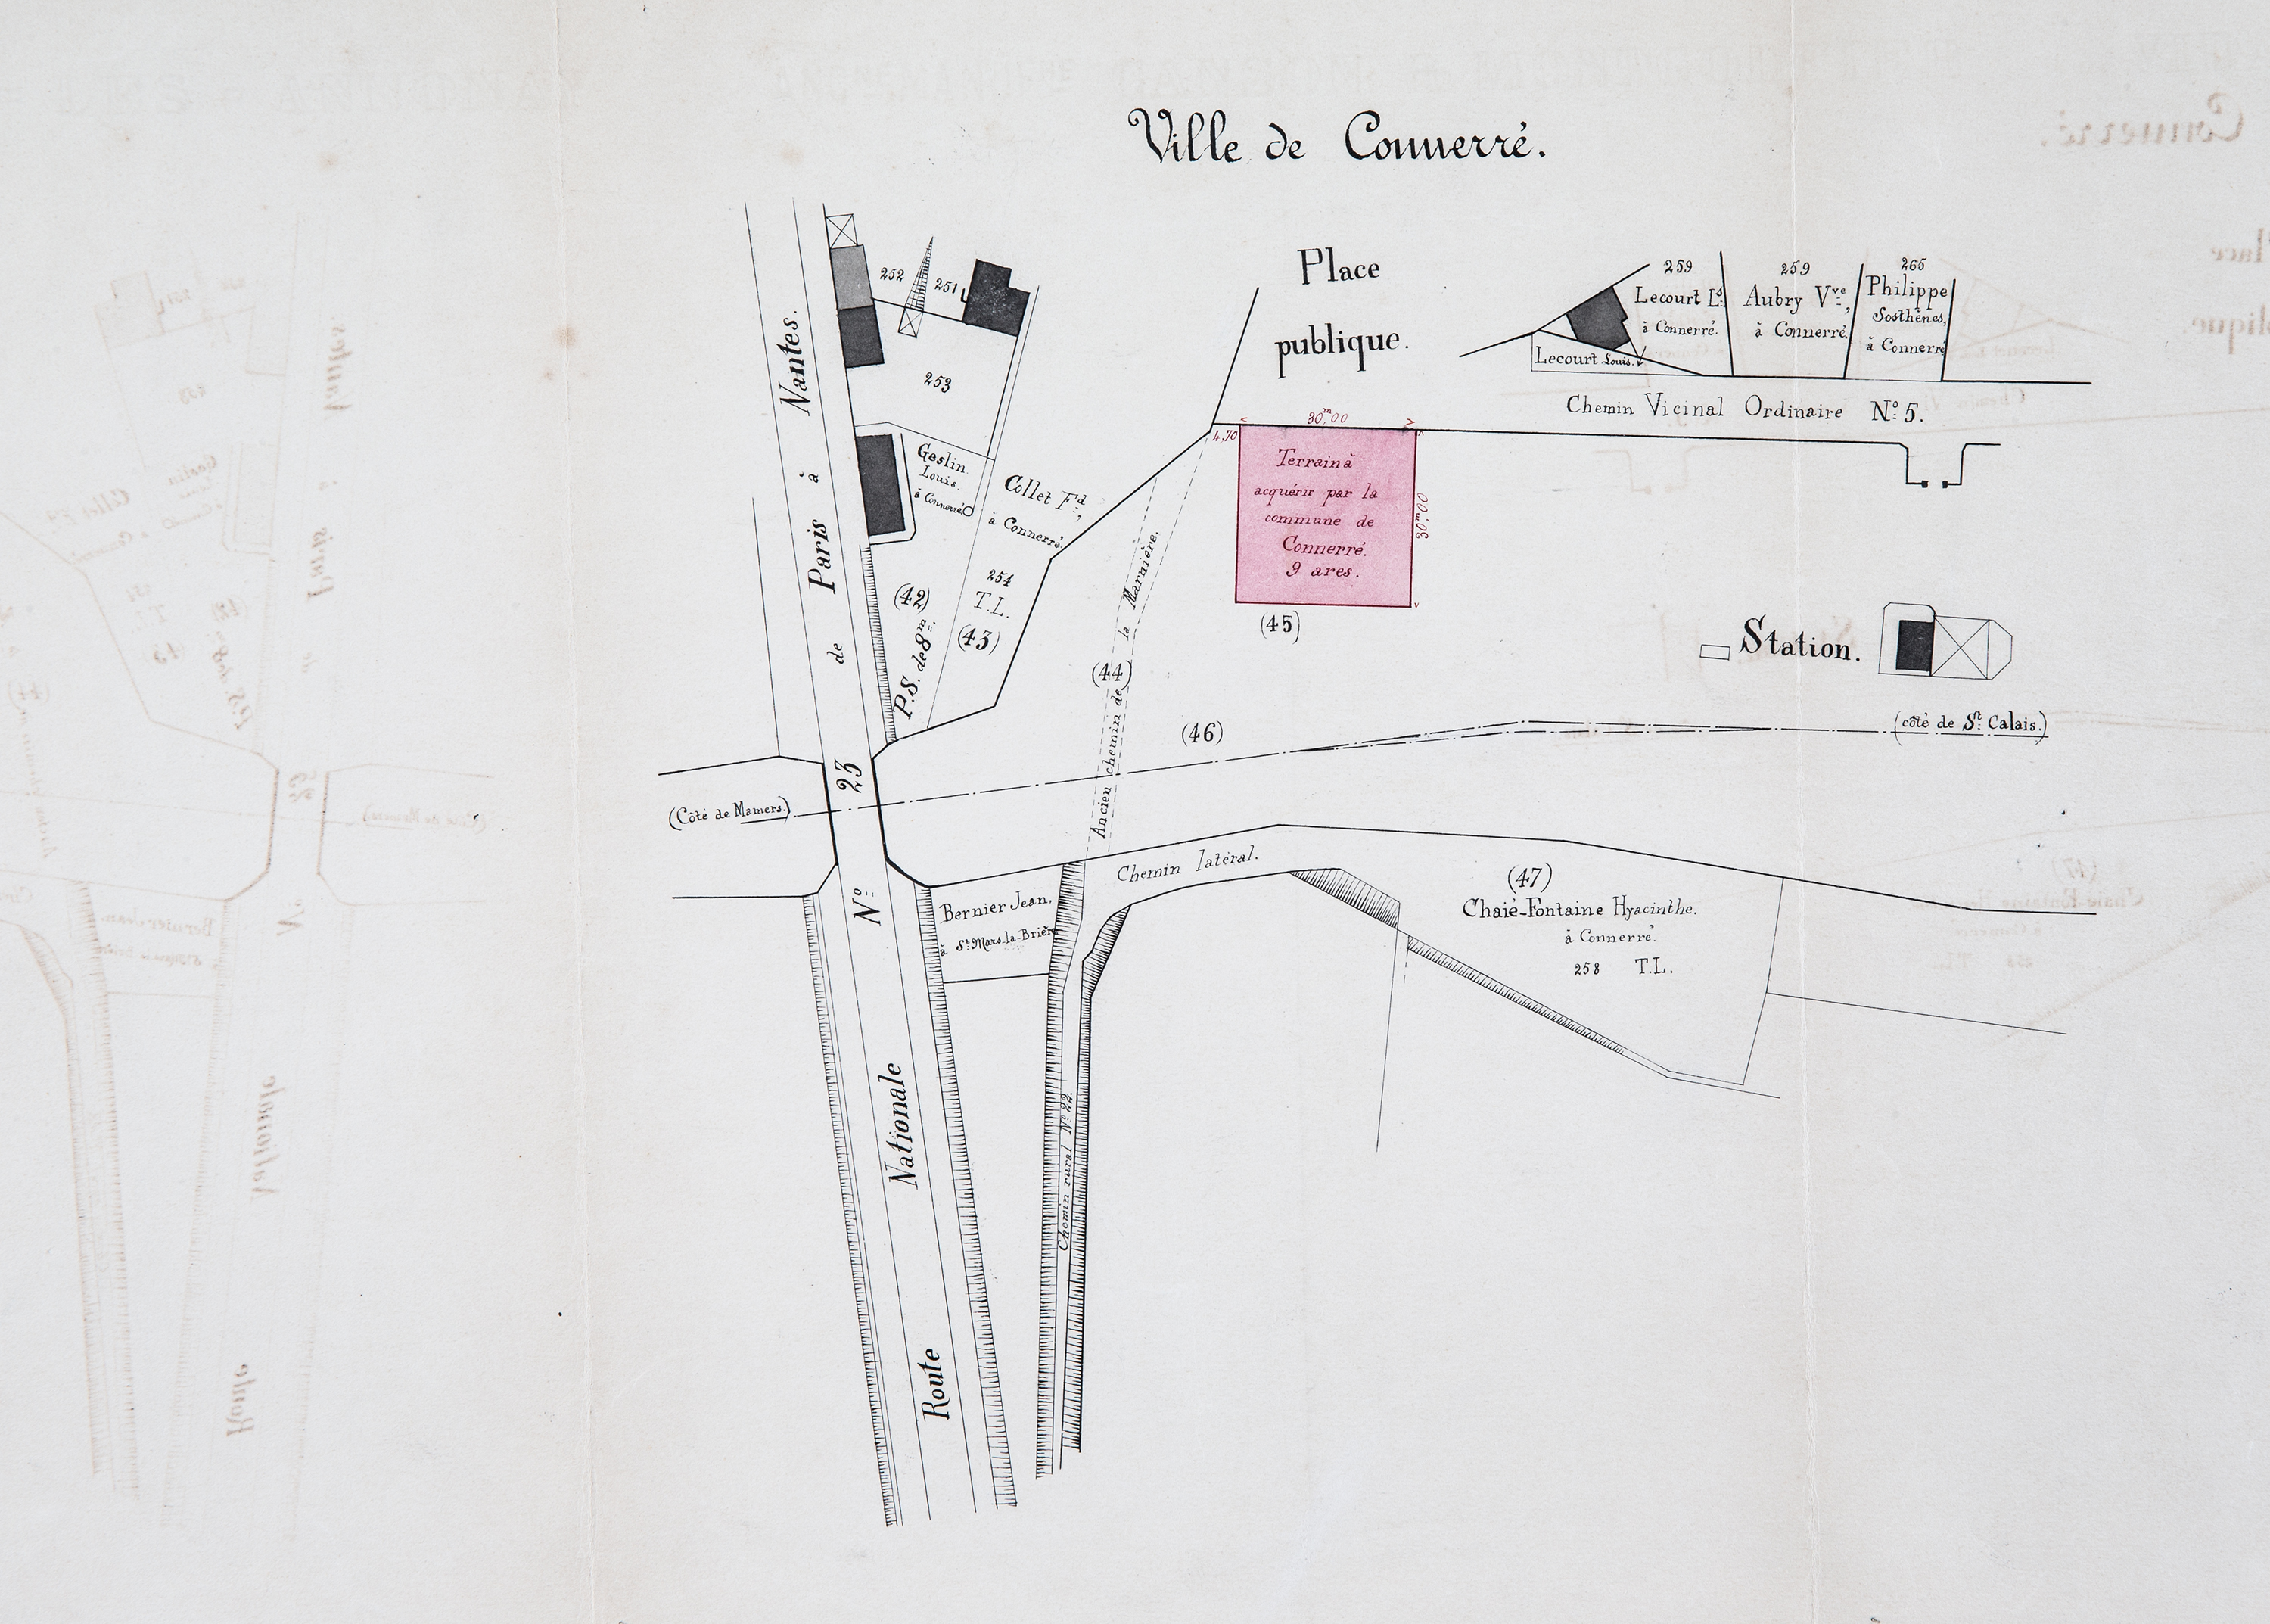 Ville de Connerré.
Place
publique.
252
251
253
259
Lecourt Ls.
à Connerré.
Lecourt Louis.
259
Aubry Vve,
à Connerré.
265
Philippe
Sosthènes,
à Connerré
Chemin Vicinal Ordinaire No. 5.
30m,00
4,70
30m,00
Terrain à
acquérir par la
commune de
Connerré.
9 ares.
(45)
Geslin
Louis.
à Connerré
Collet Fd.,
à Connerré.
254
T.L.
(43)
(42)
P.S. de 8m.
(44)
Ancien chemin de la Marnière.
(46)
Station.
(côté de St. Calais.)
(Côté de Mamers.)
Route Nationale No. 23 de Paris à Nantes.
Chemin latéral.
Bernier Jean,
à St. Mars-la-Brière
Chemin rural No. 22.
(47)
Chaié-Fontaine Hyacinthe.
à Connerré.
258 T.L.